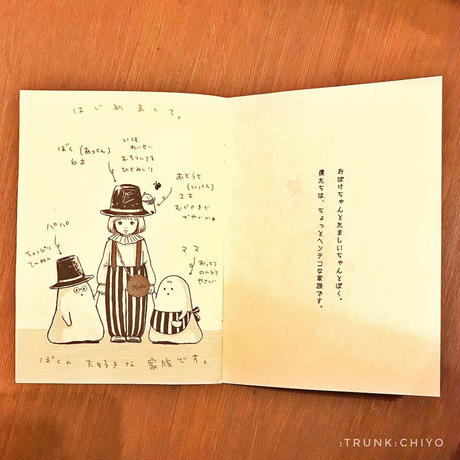 はじめまして。
ぼく(あっちん)
6才
いつも
れいせい
むちうにてる
ひとみしり
おとうと
(いっちん)
2才
むじゃきで
かわいい
パパ
ちょっぴり
てんねん
ママ
おっとり
のんびり
やさしい
ぼくの 大好きな 家族です。
おばけちゃんとたましいちゃんとぼく。
僕たちは、ちょっとヘンテコな家族です。
:TRUNK:CHIYO